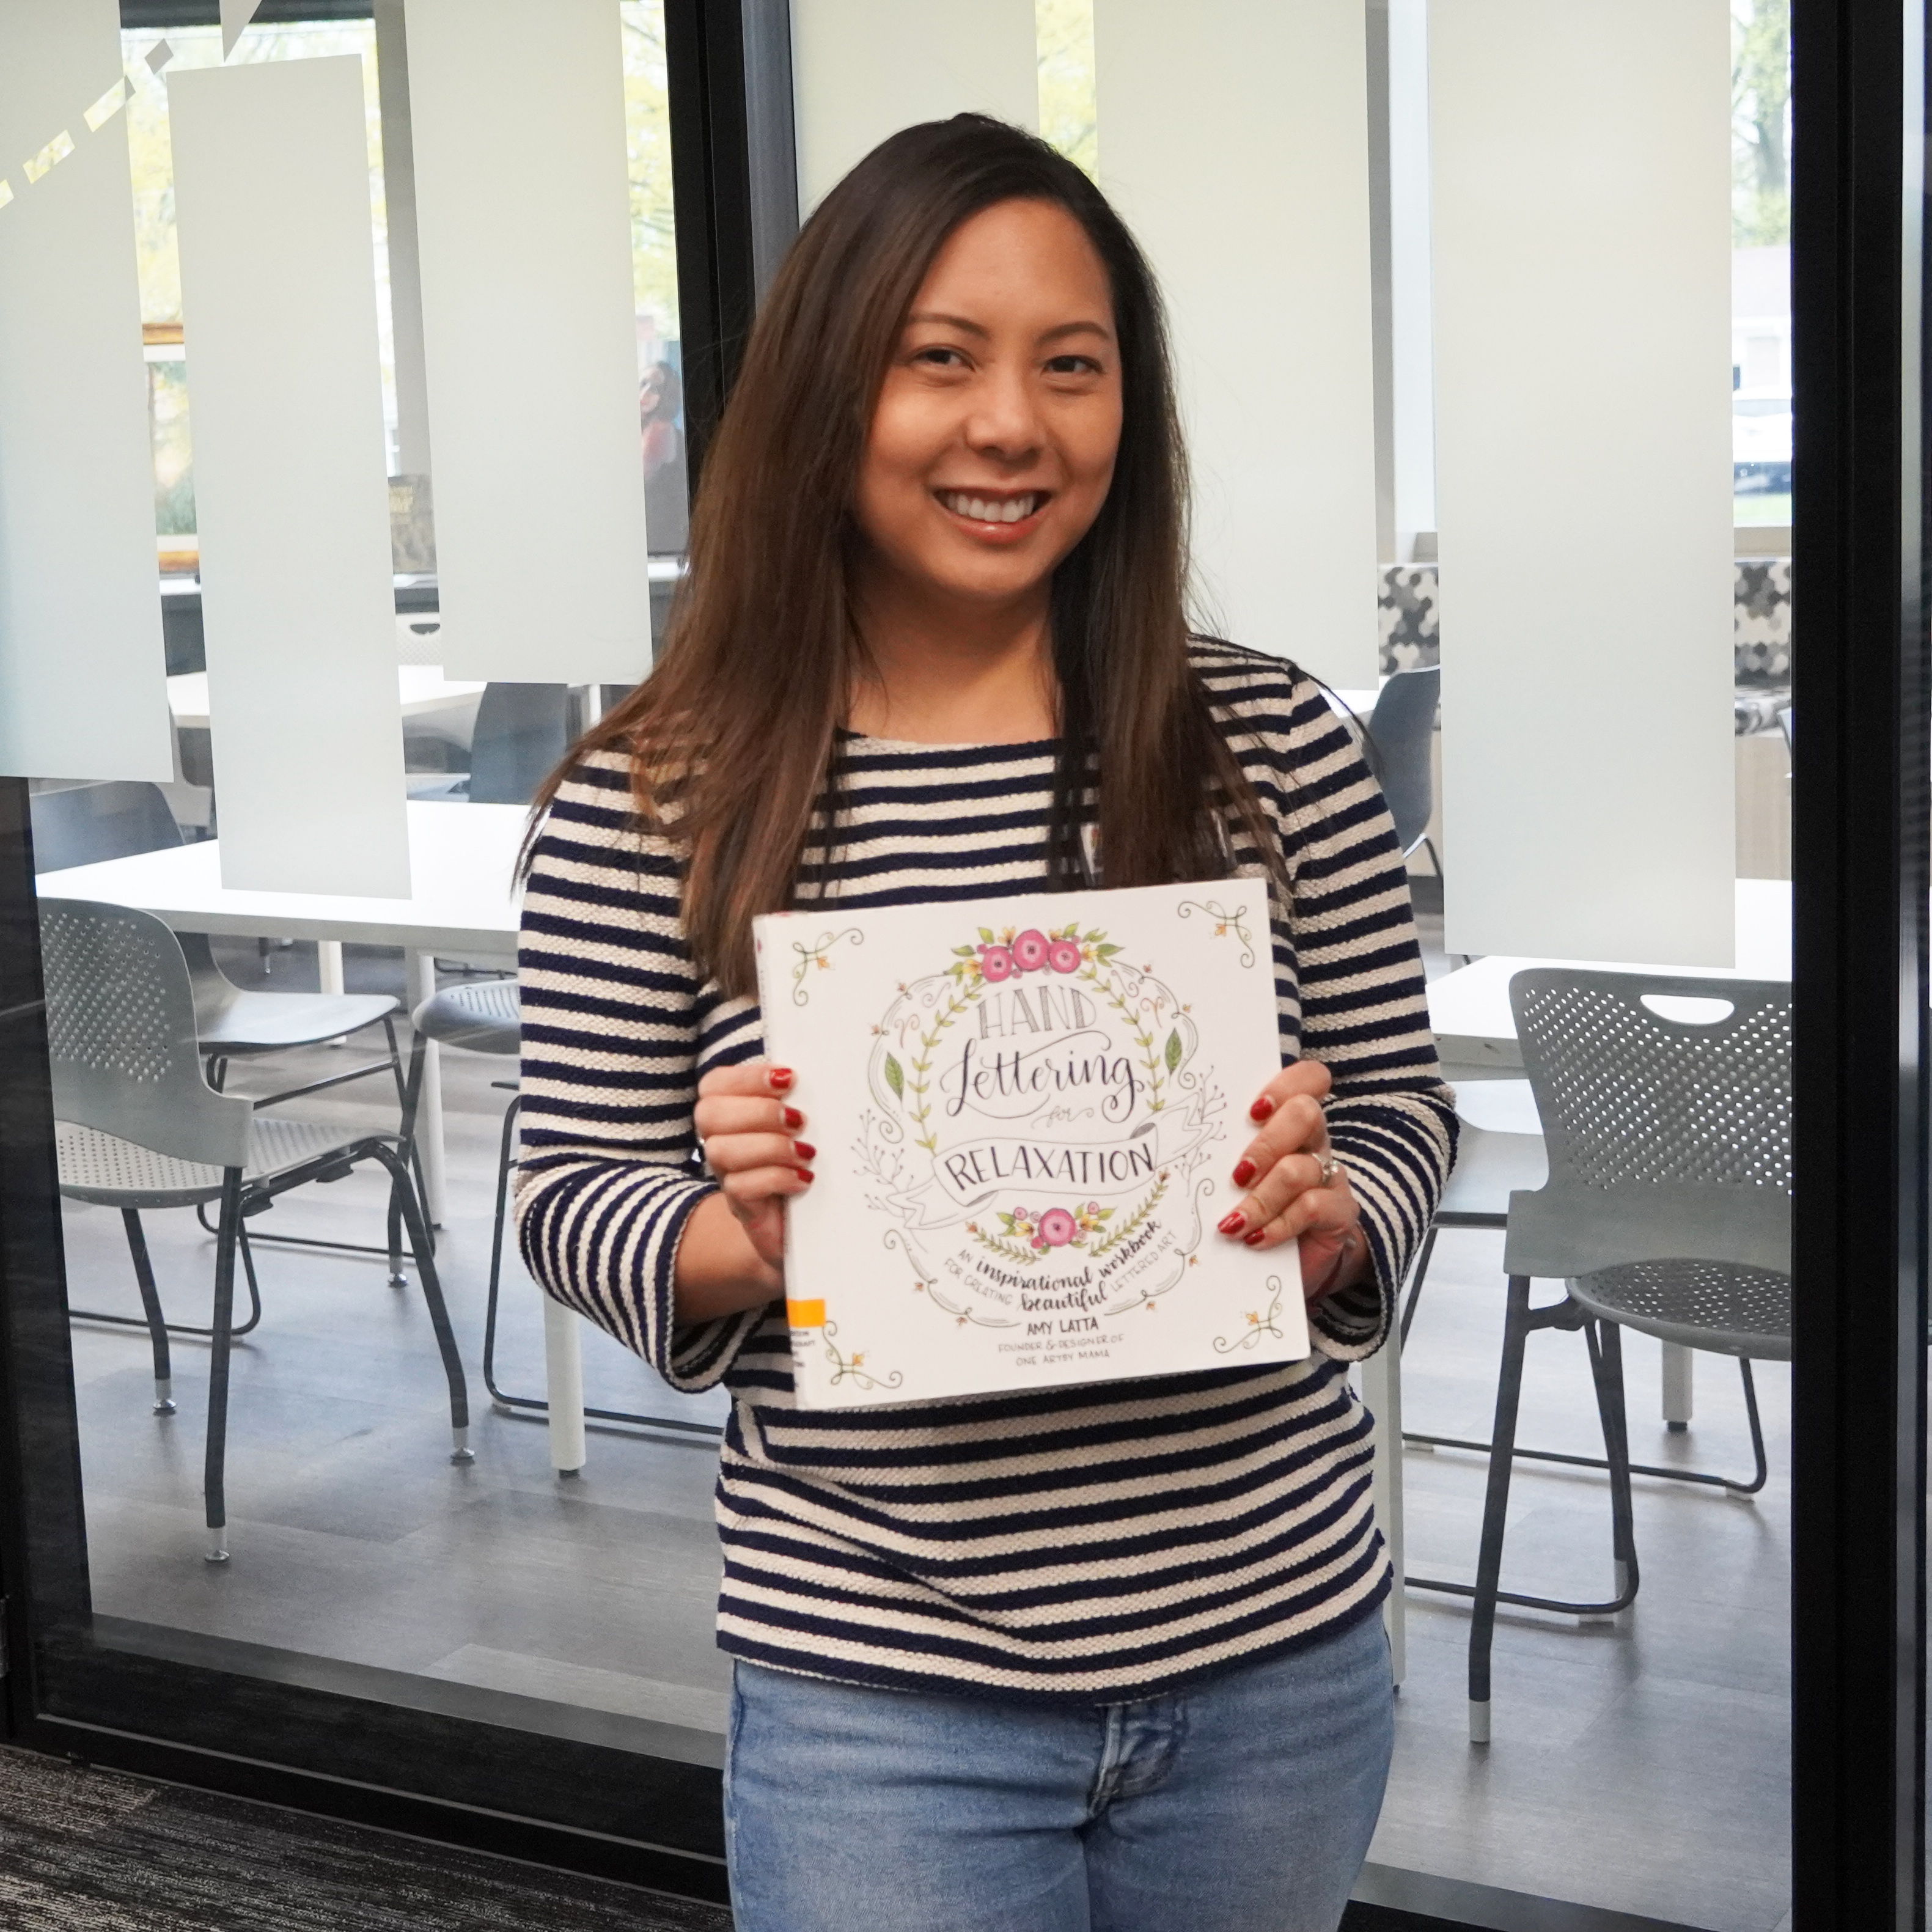 HAND
Lettering
for
RELAXATION
AN inspirational workbook
FOR CREATING beautiful LETTERED ART
AMY LATTA
FOUNDER & DESIGNER OF
ONE ARTSY MAMA